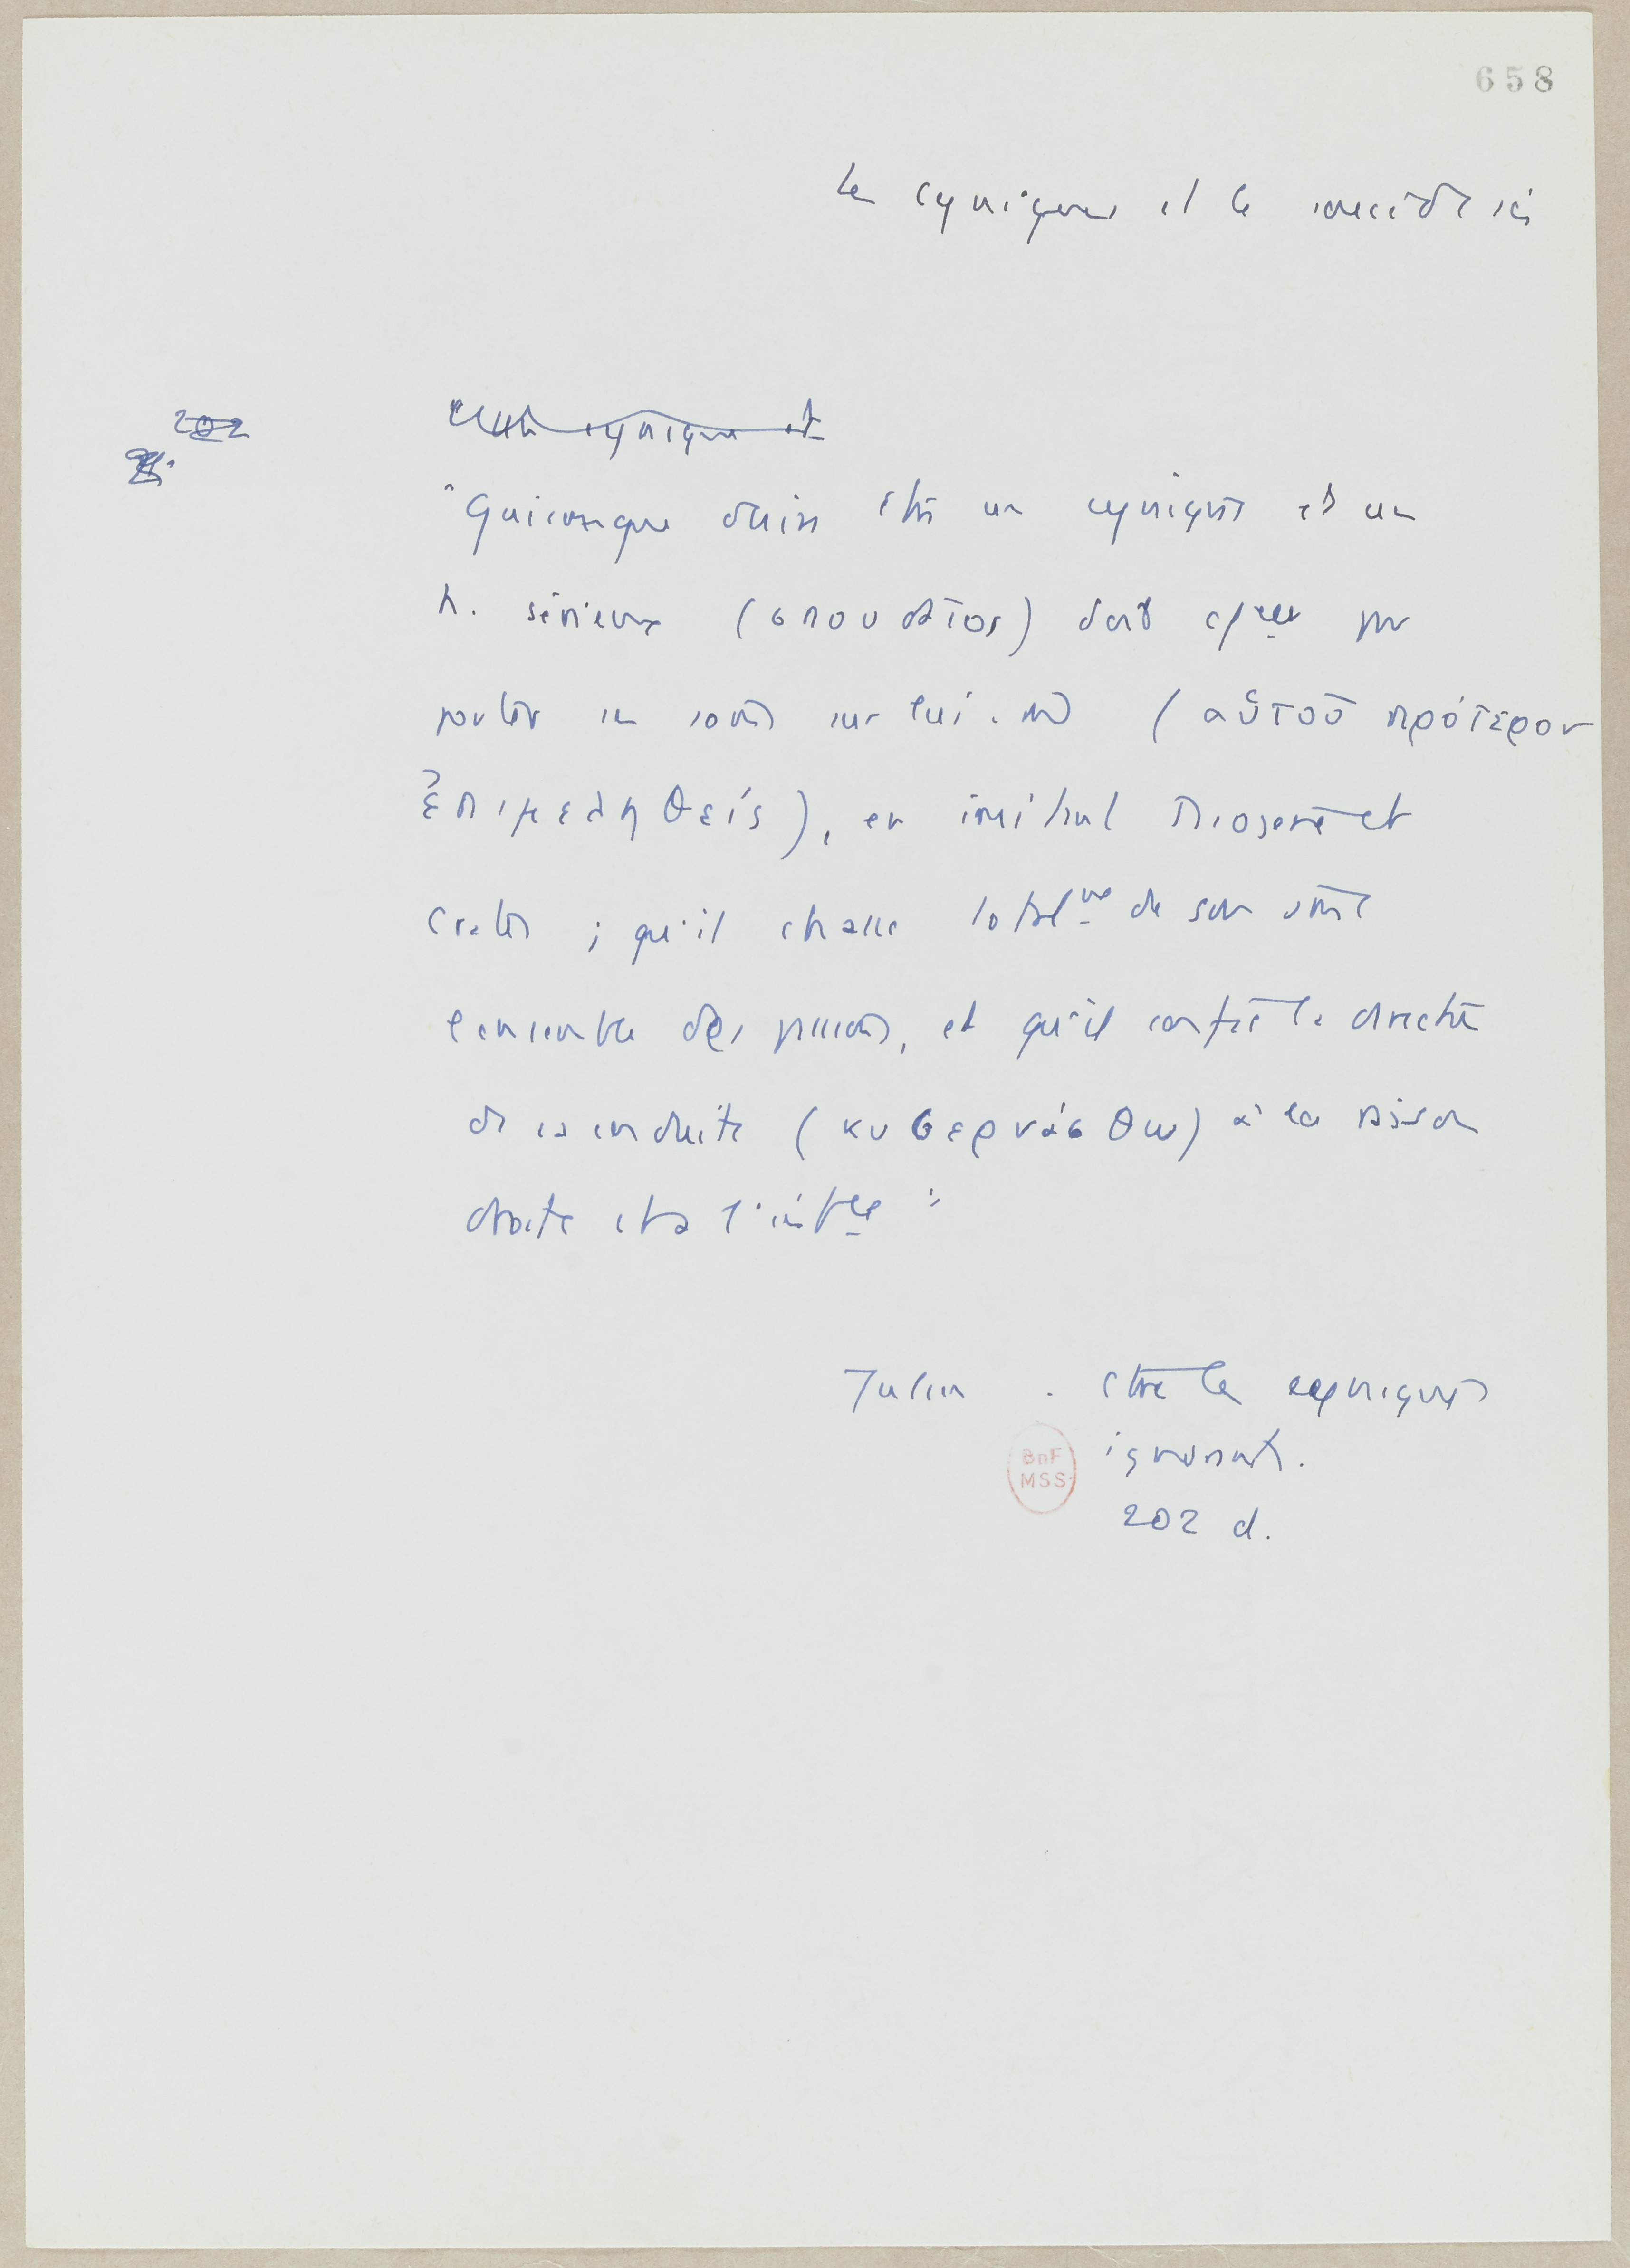 658
Les cyniques et le souci de soi
202
"Quiconque désire être un cynique et un
h. sérieux (σπουδαῖος) doit c/cer par
porter ses soins sur lui-m (αὑτοῦ πρότερον
ἐπιμεληθείς), en imitant Diogène et
Cratès ; qu'il chasse totalmt de son âme
l'ensemble des passions, et qu'il confie la direction
de sa conduite (κυβερνάσθω) à la raison
droite et à l'intell"
Julien . Contre les cyniques
ignorants.
202 d.
BnF
MSS